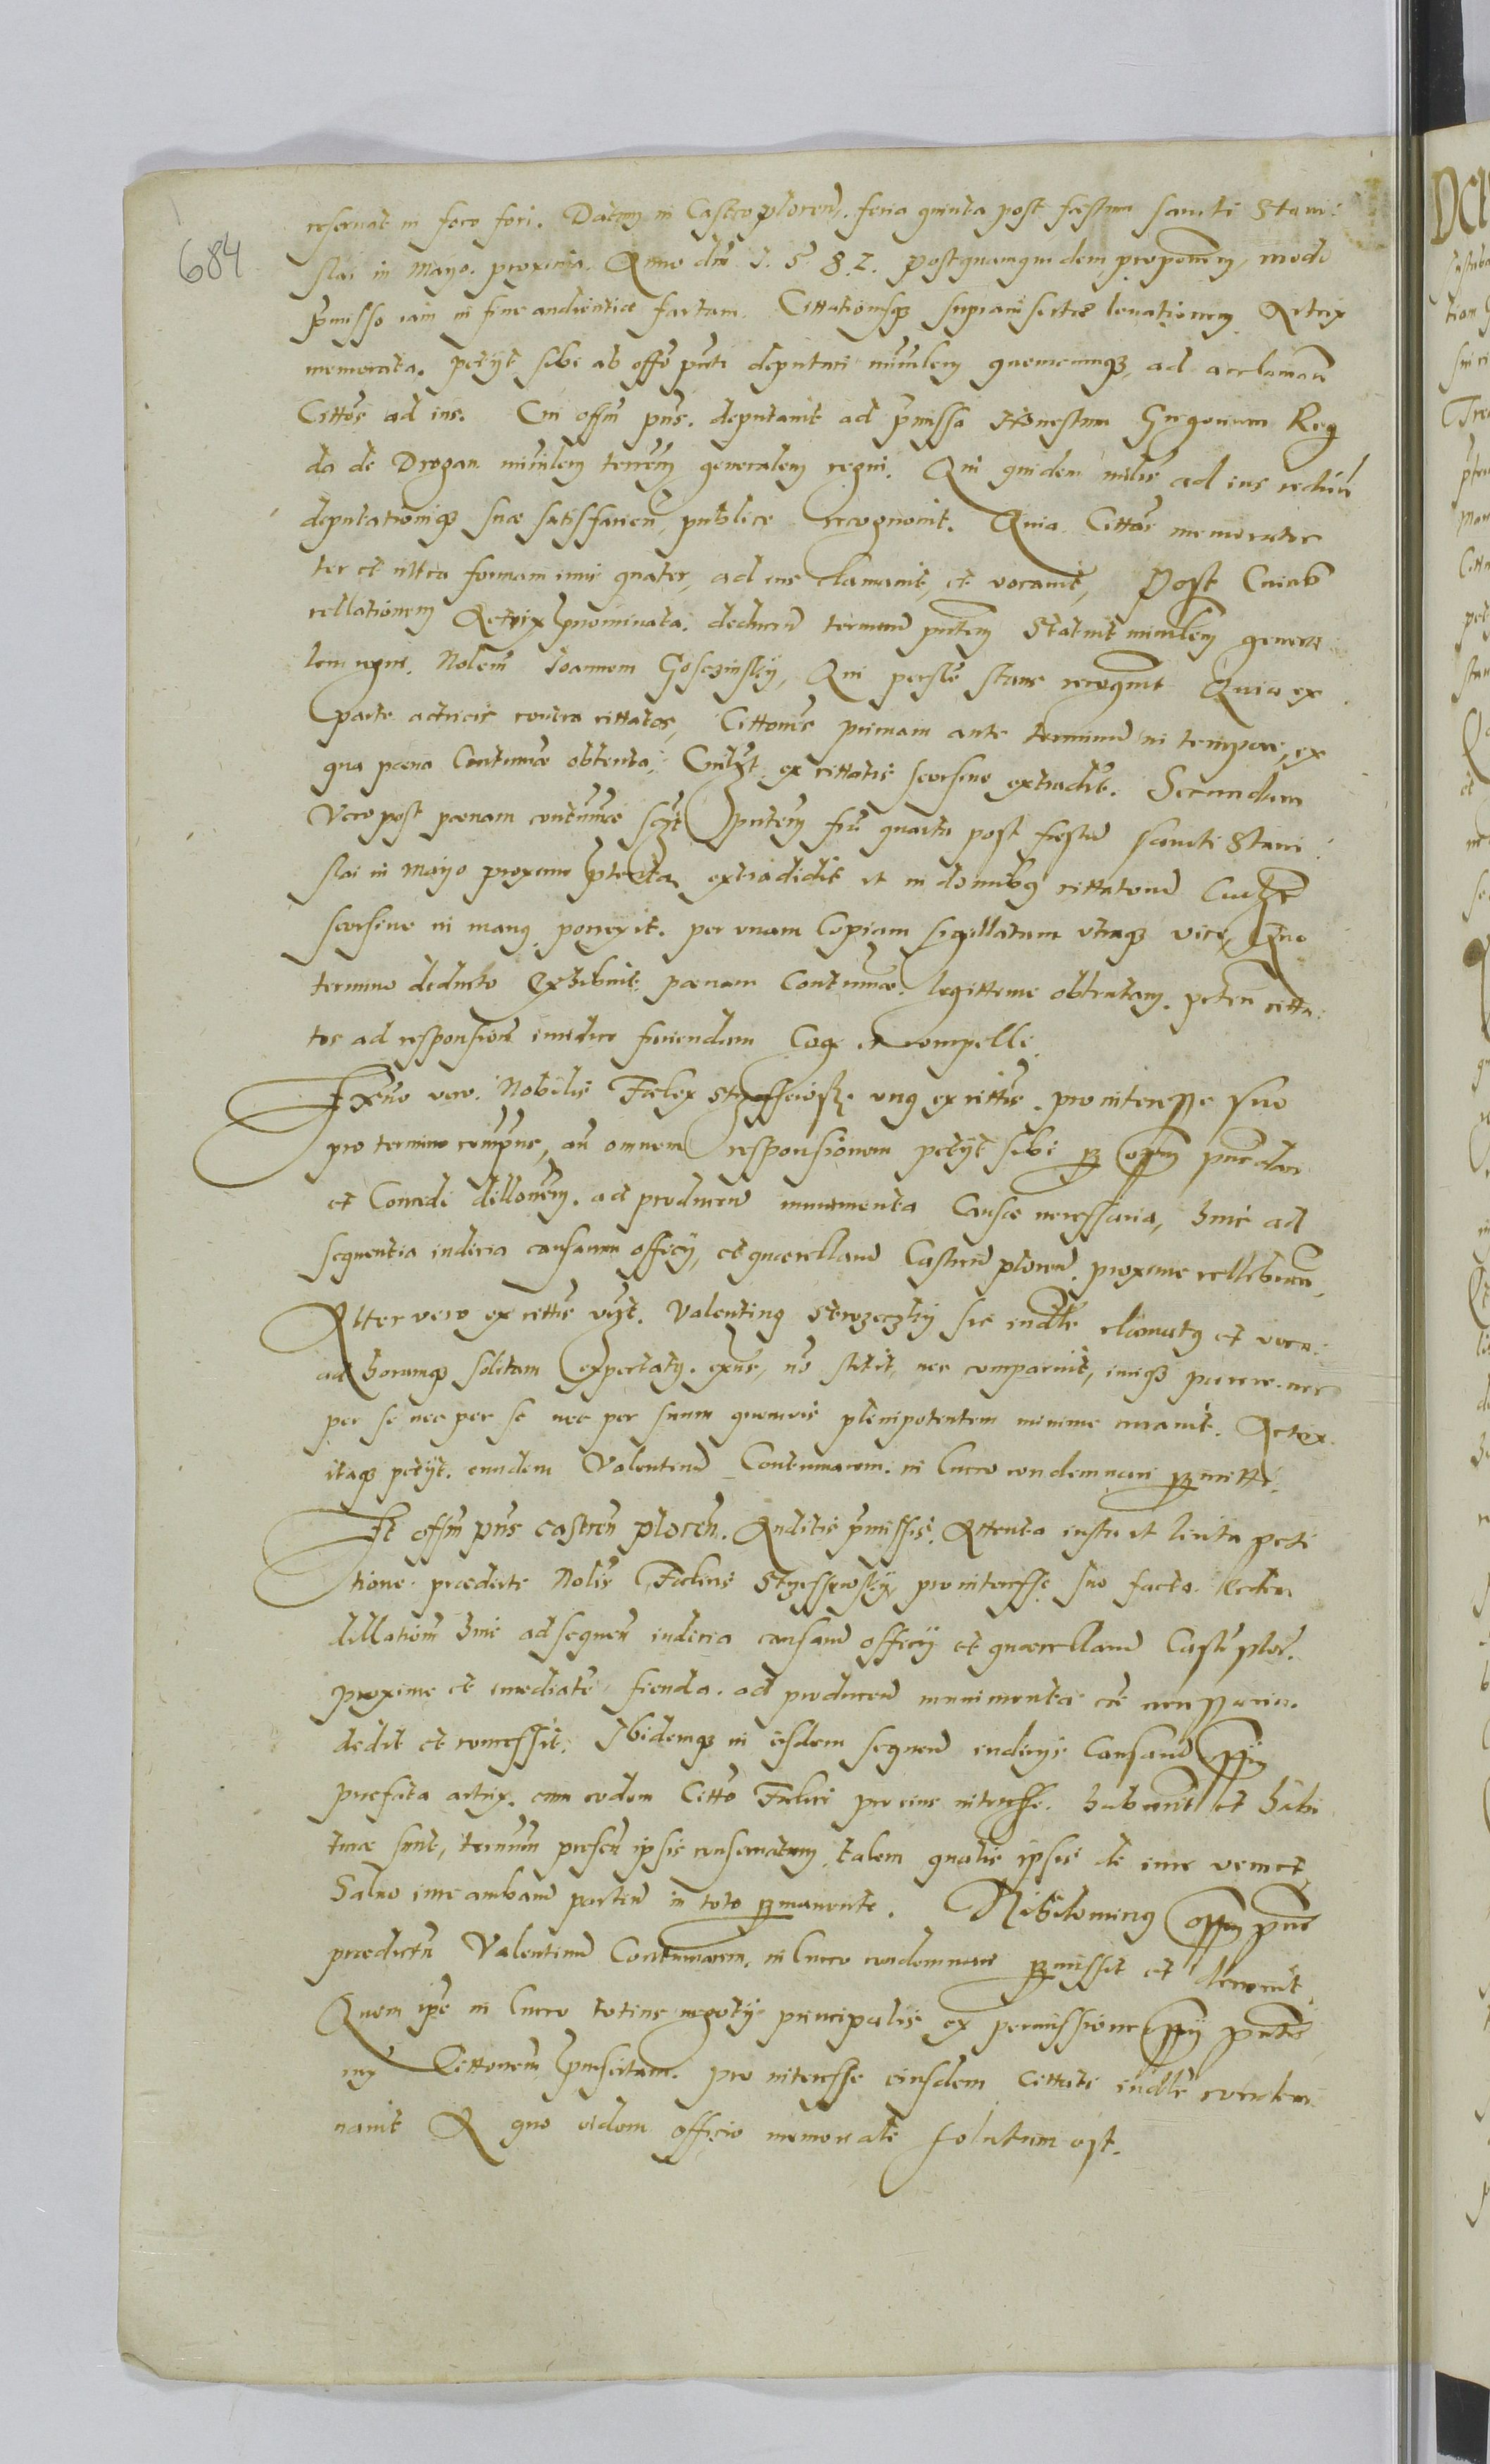 684
reservat in foro fori. Datum in Castro plocen. feria quinta post festum sancti Stani
slai in Mayo. proxima. Anno dni 1. 5. 8. 2. Postquamquidem propoñem, modo
pmisso iam in fine audientiæ factam. Cittationisq supra insertæ levationem Actrix
memorata. petyt sibi ab offo pnti deputari minrlem quemcunq, ad acclamañ
Cittos ad ius. Cui offm pns. deputavit ad pmissa Honestum Gregorium Reg
da de Drogan minrlem terrem generalem regni. Qui quidem mnlis ad ius rediũ
deputationiq suæ satisfacien, publice recognovit. Quia Cittos memoratos
ter et ultra formam iuris quater, ad ius clamavit, et vocavit, Post Cuius
rellationem Actrix pnominata. deducen terminũ pntem Statuit minrlem genera
lem regni. Nolem Joannem Gosczinsky, Qui personlr stans recognvit Quia ex
parte actricis contra cittatos, Cittones primam ante terminũ in tempore, ex
qua pæna Contumac obtenta, Cuilzt ex cittatis seorsive extradit. Secundam
Vero post pænam contumac scyt pntem fria quarta post festũ Sancti Stani
slai in Mayo proxim pterita extradidit et in domibus cittatorũ Cuilzt
seorsive in manus porrexit. per unam Copiam sigillatam utraq vice, Quo
termino deducto Exhibuit pænam Contumac. legittime obtentam. peten citta
tos ad responsion in medico faciendam Cogi et compelli.
Ex quo vero. Nobilis Fælex Strzessewsky. unus ex cittis. pro interesse suo
pro termino compns, añ omnem responsionem petyt sibi p offm pns dari
et Concedi dillonem. ad producen munimenta Causæ necessaria, hinc ad
sequentia iudicia causarum officy, et quærellarũ Castren plocen. proxime cellebran,
Alter vero ex cittis uzt. Valentinus Strozeczky sic iudlr clamatus et voca
ad horamq solitam expectatus. exns, no stetit, nec comparuit, iuriq parere nec
per se nec per se nec per suum quemvis plenipotentem minime curavit. Actrix
itaq petyt. eundem Valentinũ Contumacem. in lucro condemnari pmitti.
Et offm pns castren plocen. Auditis pmissis. Attenta iusta et licita peti
tione. prædicte Nolis Fælicis Strzessewsky pro interesse suo facta. Eidem
dillationem hinc ad sequen iudicia causarũ officy et quærellarũ Castr ploc.
proxime et imediate fienda. ad producen munimenta cæ necessaria.
dedit et concessit. Ibidemq in eisdem sequen iudicys Causarũ offy
præfata actrix. cum eodem Citto Fælici pro eius interesse. habuerit et habi
turæ sunt, terminum presen ipsis conservatum talem qualis ipsis de iure venict
Salvo iure ambarũ partiũ in toto pmanente. Nihilominus offm pns
prædictũ Valentinũ Contumacem. in lucro condemnare pmissit et decrevit
Quem ipe in lucro totius negoty principalis ex permissione offy pntis
iux Cittonem pinsertam. pro interesse eiusdem cittati iudlr condem
navit A quo eidem officio memoriale solutum est.